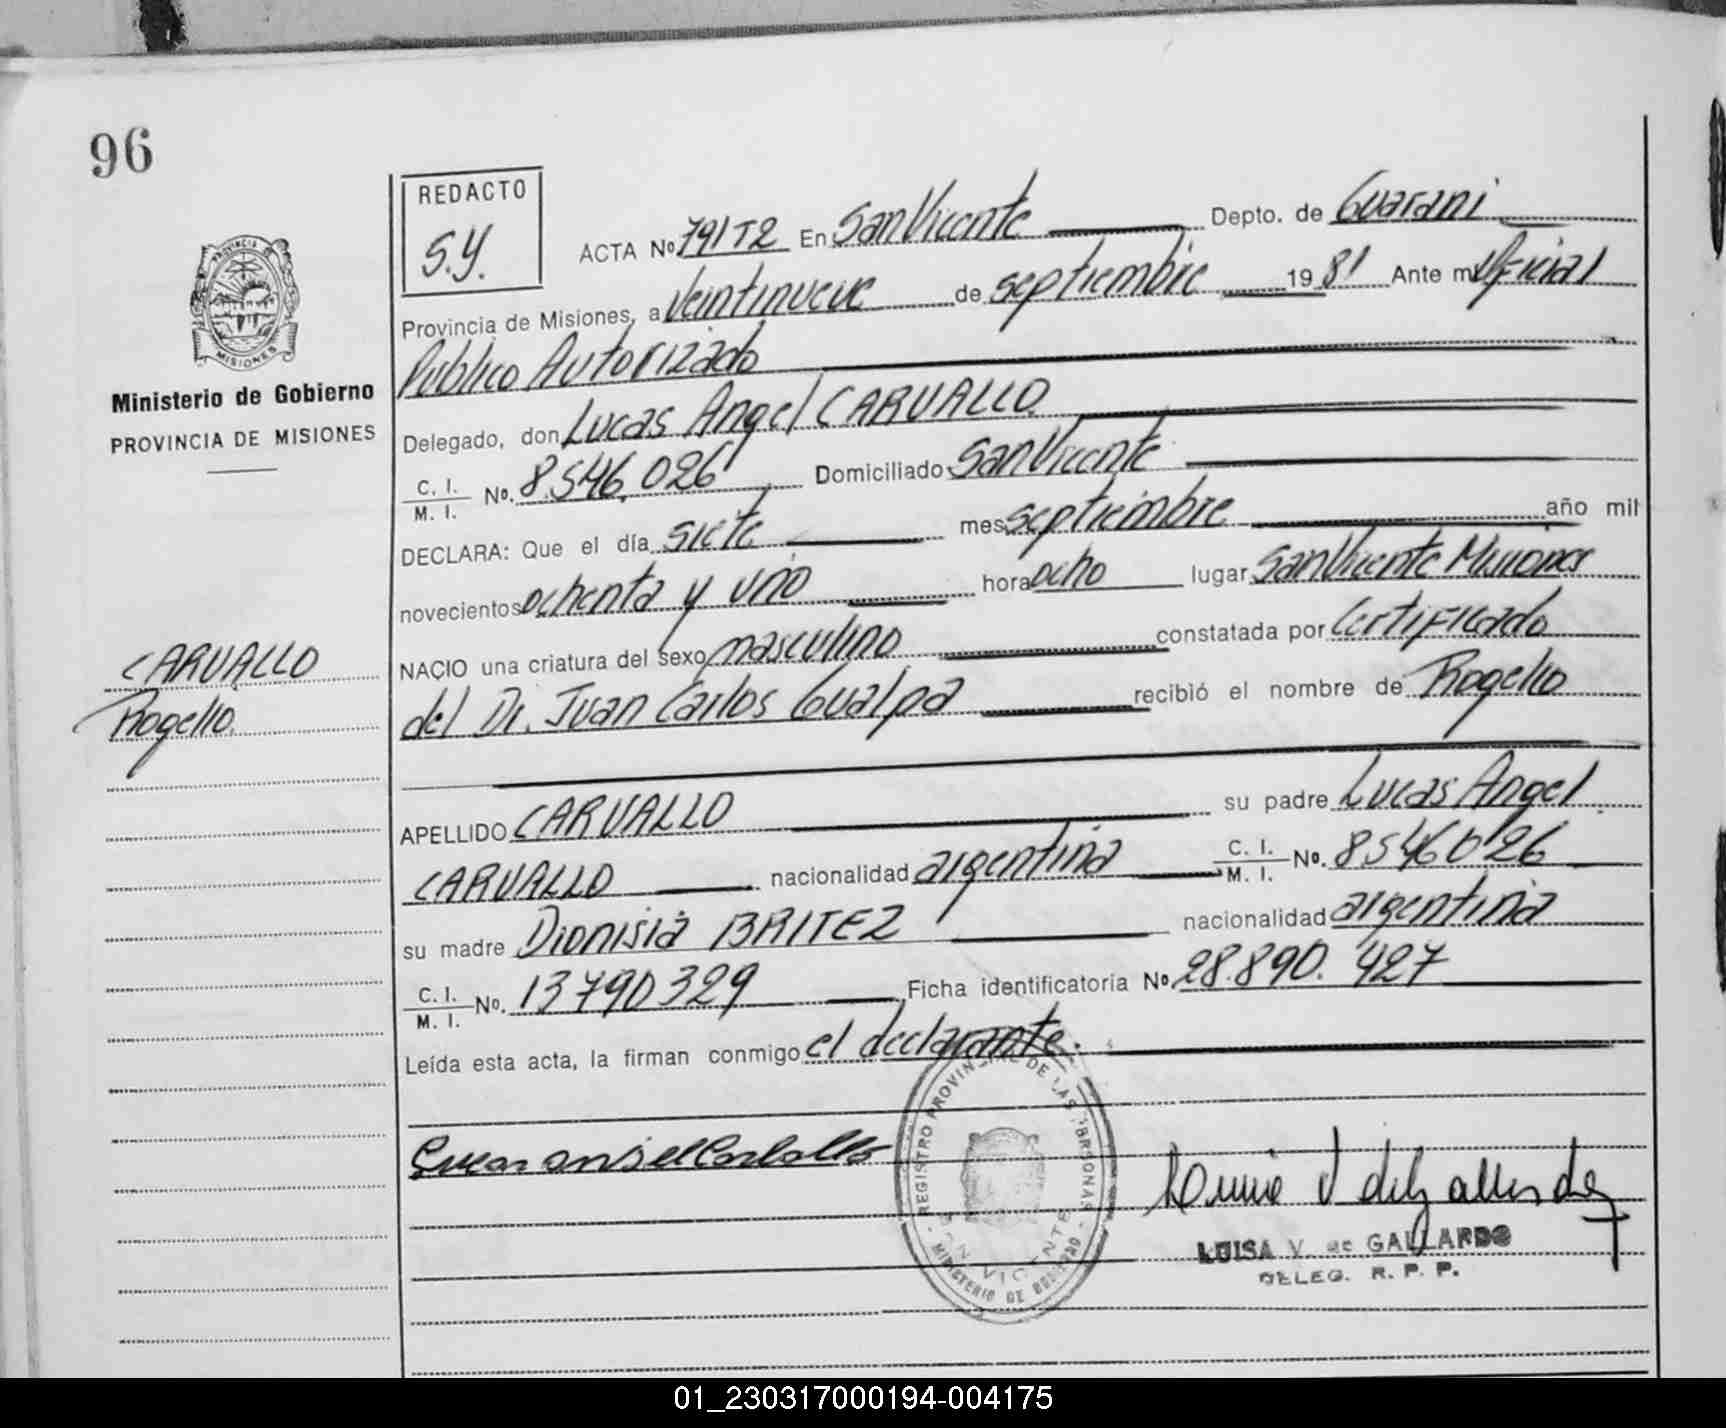 96
REDACTO
S.Y.
ACTA Nº 791T2 En San Vicente Depto. de Guarani
Provincia de Misiones, a veintinueve de septiembre 1981 Ante mi Oficial
Publico Autorizado
Delegado, don Lucas Angel CARVALLO
C. I. / M. I. Nº. 8.546.026 Domiciliado San Vicente
DECLARA: Que el día siete mes septiembre año mil
novecientos ochenta y uno hora ocho lugar San Vicente Misiones
NACIO una criatura del sexo masculino constatada por Certificado
del Dr. Juan Carlos Gualpa recibió el nombre de Rogelio
APELLIDO CARVALLO su padre Lucas Angel
CARVALLO nacionalidad argentina C. I. / M. I. Nº. 8546026
su madre Dionisia BRITEZ nacionalidad argentina
C. I. / M. I. Nº. 13790329 Ficha identificatoria Nº 28.890.427
Leída esta acta, la firman conmigo el declarante.
PROVINCIA
MISIONES
Ministerio de Gobierno
PROVINCIA DE MISIONES
CARVALLO
Rogelio.
REGISTRO PROVINCIAL DE LAS PERSONAS
SAN VICENTE
MINISTERIO DE GOBIERNO
LUISA V. de GALLARDO
DELEG. R. P. P.
01_230317000194-004175